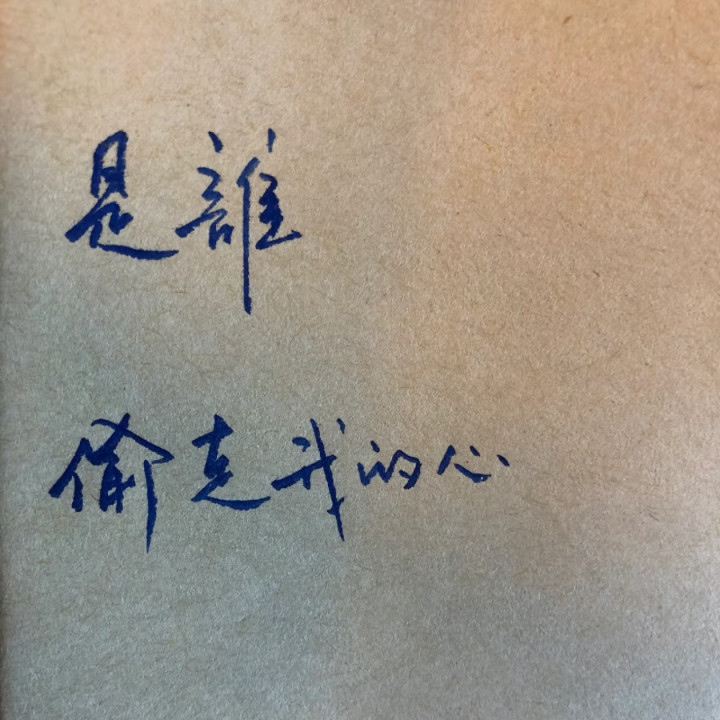 是誰
偷走我的心